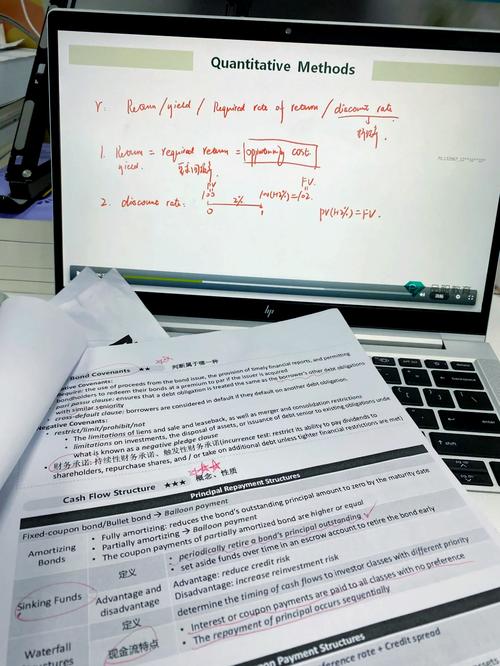 Quantitative Methods
r: Return/yield / Required rate of return / discount rate
1. Return = required return = opportunity cost.
yield.
FV
FV.
100
2%
100(1+2%)=102.
2. discount rate:
PV(1+2%)=FV.
0
1
hp
Bond Covenants ★★
判断属于哪一种
Covenants:
require: the use of proceeds from the bond issue, the provision of timely financial reports, and permitting
bondholders to redeem their bonds at a premium to par if the issuer is acquired
pari passu clause: ensures that a debt obligation is treated the same as the borrower's other debt obligations
with similar seniority
cross-default clause: borrowers are considered in default if they default on another debt obligation.
Negative Covenants:
restrict/limit/prohibit/not
The limitations of liens and sale and leaseback, as well as merger and consolidation restrictions
limitations on investments, the disposal of assets, or issuance of debt senior to existing obligations
what is known as a negative pledge clause
财务承诺: 持续性财务承诺、触发性财务承诺(incurrence test: restrict its ability to pay dividends to
shareholders, repurchase shares, and / or take on additional debt unless tighter financial restrictions are met)
Cash Flow Structure ★★★
概念、性质
Principal Repayment Structures
Fixed-coupon bond/Bullet bond → Balloon payment
Amortizing
Bonds
• Fully amortizing: reduces the bond's outstanding principal amount to zero by the maturity date
• Partially amortizing → Balloon payment
• The coupon payments of partially amortized bond are higher or equal
Sinking Funds
定义
• periodically retire a bond's principal outstanding
• set aside funds over time in an escrow account to retire the bond early
Advantage and
disadvantage
Advantage: reduce credit risk
Disadvantage: increase reinvestment risk
Waterfall
定义
determine the timing of cash flows to investor classes with different priority
现金流特点
• Interest or coupon payments are paid to all classes with no preference
• The repayment of principal occurs sequentially
Payment Structures
rate + Credit spread